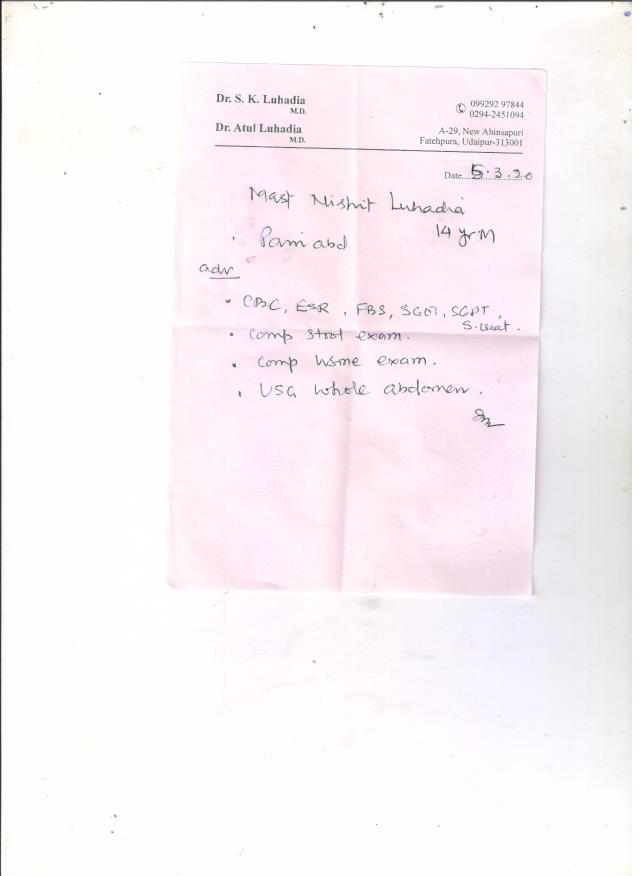 Dr. S. K. Luhadia
M.D.
Dr. Atul Luhadia
M.D.
099292 97844
0294-2451094
A-29, New Ahinsapuri
Fatehpura, Udaipur-313001
Date 5.3.20
Mast Nishit Luhadia
14 yr M
· Pain abd
adv
· CBC, ESR, FBS, SGOT, SGPT,
S. Creat.
· Comp stool exam.
· Comp urine exam.
· USG whole abdomen.